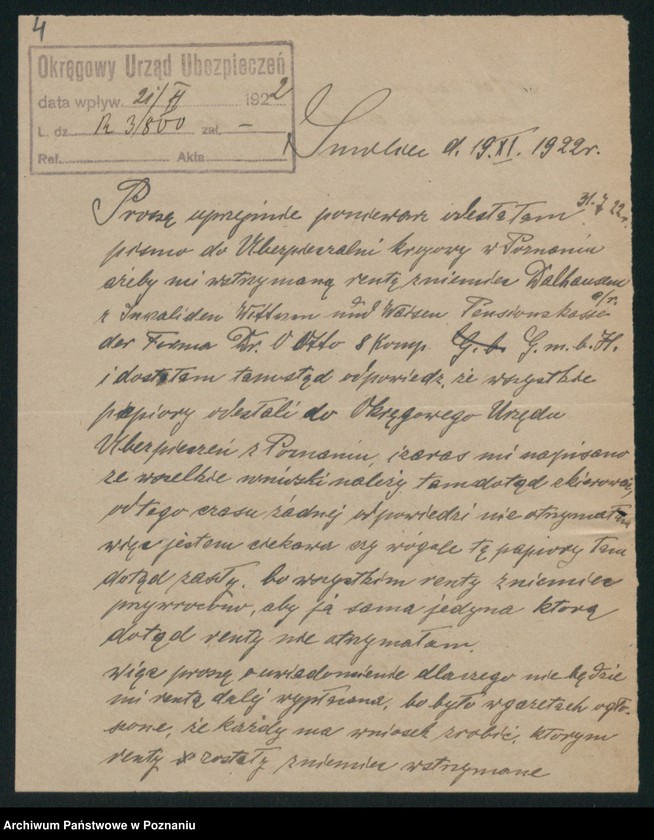 4
Okręgowy Urząd Ubezpieczeń
data wpływ. 21/XI 1922
L. dz. R 3/800 zał. —
Ref. Akta
d. 19.XI. 1922r.
Proszę uprzejmie poniewarz odesłałam 31.7 22r.
pismo do Ubezpieczalni krajowy w Poznaniu
ażeby mi wstrzymaną rentę zniemiec Dalhausen a/r.
z Invaliden Wittwen und Waisen Pensionskasse
der Firma Dr. C Otto & Komp. G. m. b. H.
i dostałam tamstąd odpowiedz, że wszystkie
papiory odesłali do Okręgowego Urzędu
Ubezpieczeń z Poznaniu, izaras mi napisano
że wszelkie wnioski należy tamdotąd skierować,
od tego czasu żádnej odpowiedzi nie otrzymałam
więc jestem ciekawa czy wógale tę papiory tam
dotąd zaszły. bo wszystkim renty zniemiec
przywrócono, aby ja sama jedyna ktorą
dotąd renty nie otrzymałam.
więc proszę o uwiadomienie dlaczego nie będzie
mi renta dalij wypłacona, bo było wgazetach ogło-
szone, że każdy ma wniosek zrobić, ktorym
renty zostały zniemiec wstrzymane
Archiwum Państwowe w Poznaniu